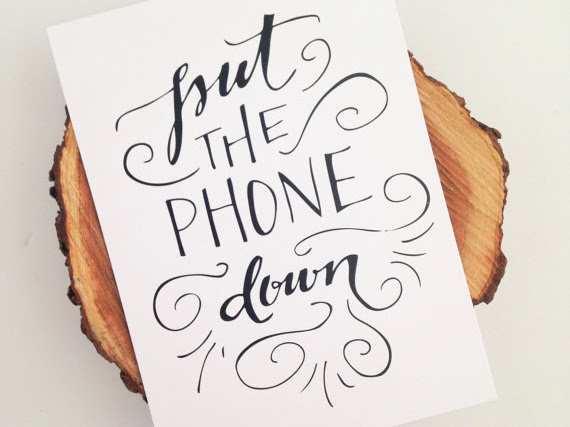 put
THE
PHONE
down